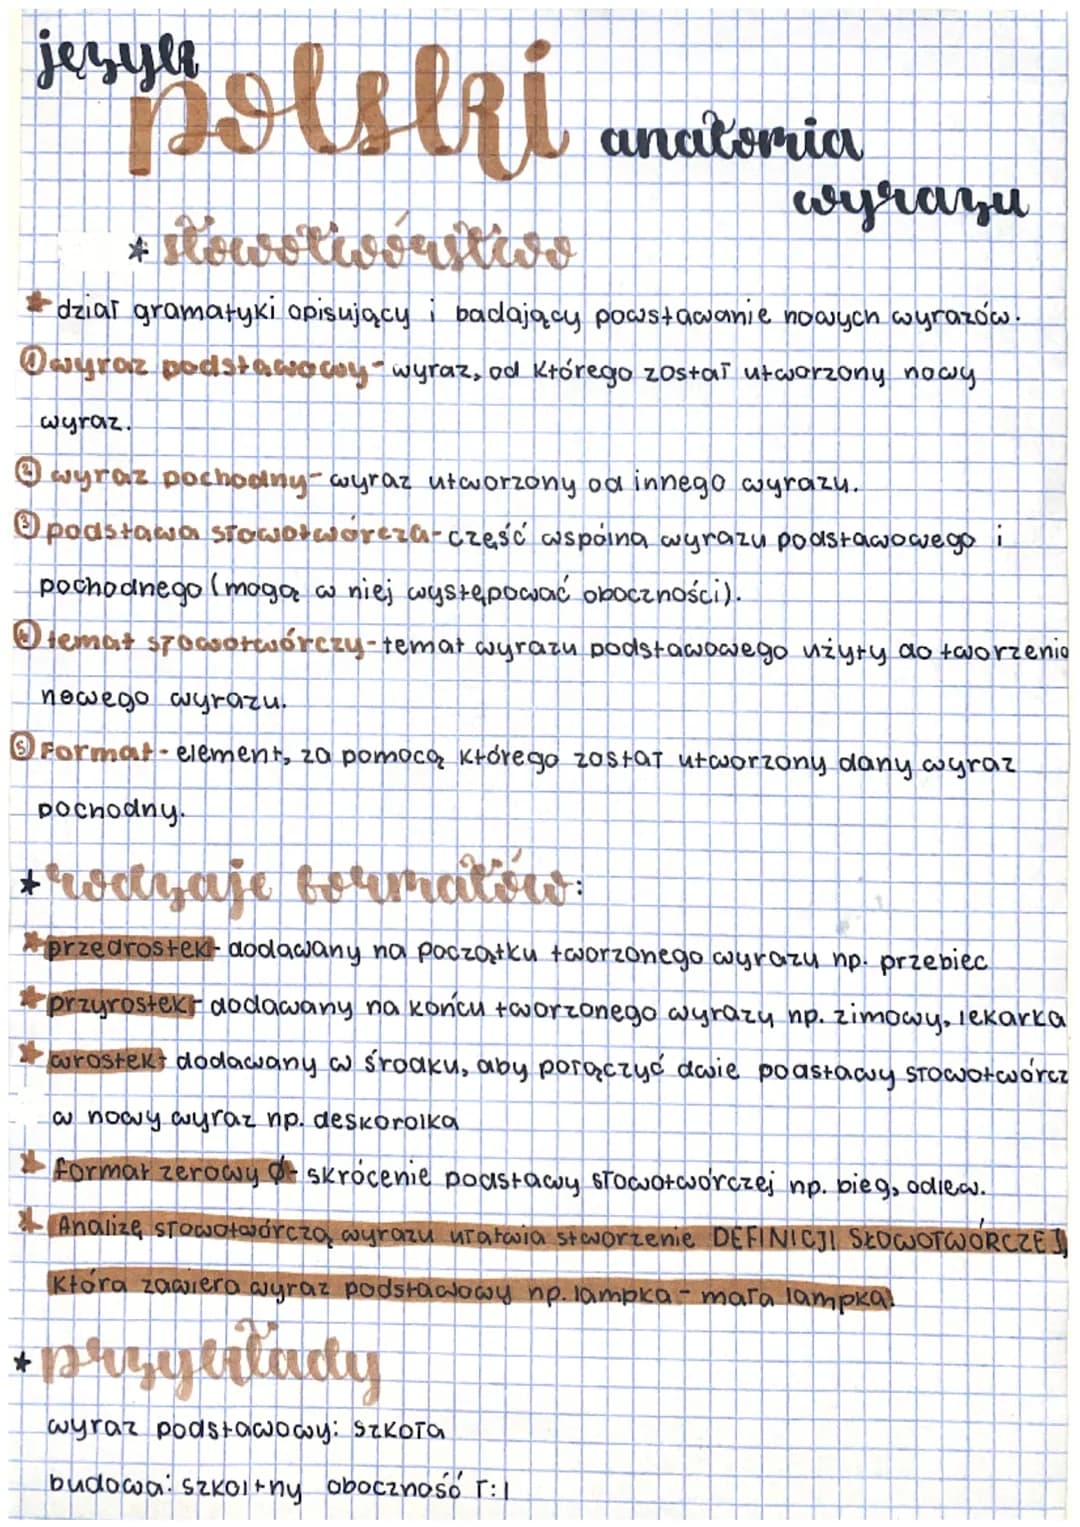 język
polski
anatomia
wyrazu
* słowotwórstwo
dział gramatyki opisujący i badający powstawanie nowych wyrazów.
① wyraz podstawowy - wyraz, od którego został utworzony nowy
wyraz.
② wyraz pochodny - wyraz utworzony od innego wyrazu.
③ podstawa słowotwórcza - część wspólna wyrazu podstawowego i
pochodnego (mogą w niej występować oboczności).
④ temat słowotwórczy - temat wyrazu podstawowego użyty do tworzenia
nowego wyrazu.
⑤ Format - element, za pomocą którego został utworzony dany wyraz
pochodny.
* rodzaje formatów:
przedrostek - dodawany na początku tworzonego wyrazu np. przebiec
przyrostek - dodawany na końcu tworzonego wyrazy np. zimowy, lekarka
wrostek - dodawany w środku, aby połączyć dwie podstawy słowotwórcz
w nowy wyraz np. deskorolka
format zerowy Ø - skrócenie podstawy słowotwórczej np. bieg, odlew.
Analizę słowotwórczą wyrazu ułatwia stworzenie DEFINICJI SŁOWOTWÓRCZEJ,
która zawiera wyraz podstawowy np. lampka - mała lampka.
* przykłady
wyraz podstawowy: szkoła
budowa: szkol+ny oboczność ł:l